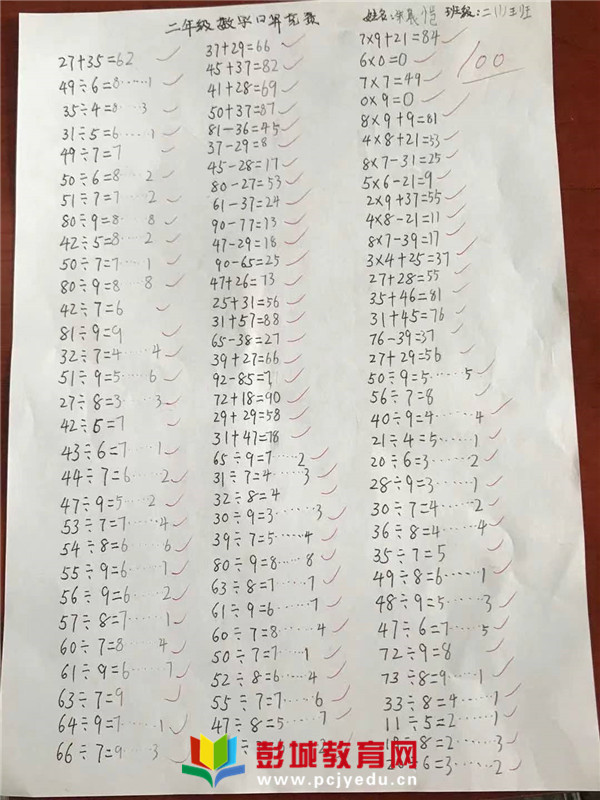 二年级数学口算竞赛
姓名: 班级:二(1)班
100
27+35=62
49÷6=8……1
35÷4=8……3
31÷5=6……1
49÷7=7
50÷6=8……2
51÷7=7……2
80÷9=8……8
42÷5=8……2
50÷7=7……1
80÷9=8……8
42÷7=6
81÷9=9
32÷7=4……4
51÷9=5……6
27÷8=3……3
42÷6=7
43÷6=7……1
44÷7=6……2
47÷9=5……2
53÷7=7……4
54÷8=6……6
55÷9=6……1
56÷9=6……2
57÷8=7……1
60÷7=8……4
61÷9=6……7
63÷7=9
64÷9=7……1
66÷7=9……3
37+29=66
45+37=82
41+28=69
50+37=87
81-36=45
37-29=8
45-28=17
80-27=53
61-37=24
90-77=13
47-29=18
90-65=25
47+26=73
25+31=56
31+57=88
65-38=27
39+27=66
92-85=7
72+18=90
29+29=58
31+47=78
65÷9=7……2
31÷7=4……3
32÷8=4
30÷9=3……3
39÷7=5……4
80÷9=8……8
63÷8=7……7
61÷9=6……7
60÷7=8……4
50÷7=7……1
52÷8=6……4
55÷7=7……6
47÷8=5……7
2
7×9+21=84
6×0=0
7×7=49
0×9=0
8×9+9=81
4×8+21=53
8×7-31=25
5×6-21=9
2×9+37=55
4×8-21=11
8×7-39=17
3×4+25=37
27+28=55
35+46=81
31+45=76
76-39=37
27+29=56
50÷9=5……5
56÷7=8
40÷9=4……4
21÷4=5……1
20÷6=3……2
28÷9=3……1
30÷7=4……2
36÷8=4……4
35÷7=5
49÷8=6……1
48÷9=5……3
47÷6=7……5
72÷9=8
73÷8=9……1
33÷8=4……1
11÷5=2……1
÷8=2……3
÷6=3……2
彭城教育网
www.pcjyedu.cn